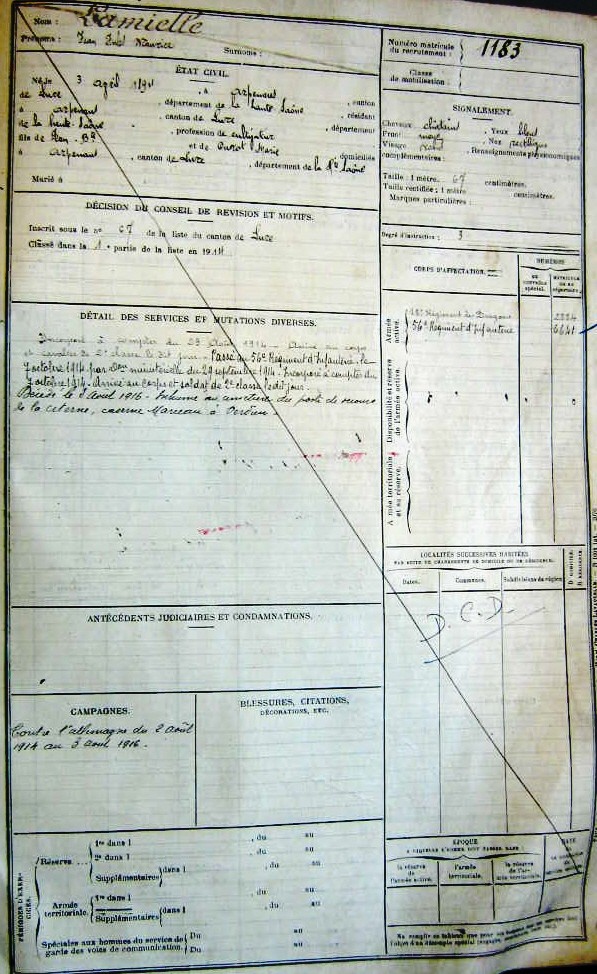 Nom : Lamielle
Prénoms : Jean Maurice
Surnoms :
ÉTAT CIVIL.
Né le 3 avril 1894, à Arpenans, canton
de Lure, département de la Haute Saône, résidant
à Arpenans, canton de Lure, département
de la Haute-Saône, profession de cultivateur
fils de et de Marie, domiciliés
à Arpenans, canton de Lure, département de la Hte Saône
Marié à
DÉCISION DU CONSEIL DE REVISION ET MOTIFS.
Inscrit sous le no 67 de la liste du canton de Lure
Classé dans la 1e partie de la liste en 1914
DÉTAIL DES SERVICES ET MUTATIONS DIVERSES.
Incorporé à compter du Août 1914 - Arrivé au corps
et cavalier de 2e classe le dit jour. Passé au 56e Régiment d'Infanterie le
7 octobre 1914 par Don ministérielle du 29 septembre 1914. Incorporé à compter du
7 octobre 1914 - Arrivé au Corps et soldat de 2e classe le dit jour.
Décédé le Août 1916 - Inhumé au cimetière du poste de secours
de la citerne, caserne Marceau à Verdun.
ANTÉCÉDENTS JUDICIAIRES ET CONDAMNATIONS.
CAMPAGNES.
Contre l'Allemagne du 2 août
1914 au 3 août 1916.
BLESSURES, CITATIONS,
DÉCORATIONS, ETC.
PÉRIODES D'EXERCICES.
Réserve....
1re dans l , du au
2e dans l , du au
Supplémentaires dans l , du au
Armée territoriale.
1re dans l , du au
Supplémentaires dans l , du au
Spéciales aux hommes du service de garde des voies de communication.
Du au
Du au
Numéro matricule du recrutement : 1183
Classe de mobilisation :
SIGNALEMENT.
Cheveux châtain, Yeux bleu
Front moyen, Nez rectiligne
Visage , Renseignements physionomiques
complémentaires :
Taille : 1 mètre, 67 centimètres.
Taille rectifiée : 1 mètre centimètres.
Marques particulières :
Degré d'instruction : 3
CORPS D'AFFECTATION.
NUMÉROS
au contrôle spécial.
matricule ou au répertoire.
Armée active.
Régiment de Dragons
56e Régiment d'Infanterie 6641
Disponibilité et réserve de l'armée active.
Armée territoriale et sa réserve.
LOCALITÉS SUCCESSIVES HABITÉES
PAR SUITE DE CHANGEMENTS DE DOMICILE OU DE RÉSIDENCE.
Dates.
Communes.
Subdivisions de région.
D. domicile.
R. résidence.
D.C.D.
ÉPOQUE
À LAQUELLE L'HOMME DOIT PASSER DANS :
la réserve de l'armée active.
l'armée territoriale.
la réserve de l'armée territoriale.
DATE